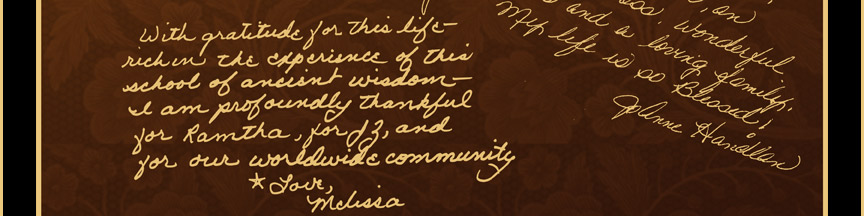 With gratitude for this life—
rich in the experience of this
school of ancient wisdom—
I am profoundly thankful
for Ramtha, for JZ, and
for our worldwide community
* Love,
Melissa
wonderful.
and a loving family.
My life is so Blessed!
JoAnne